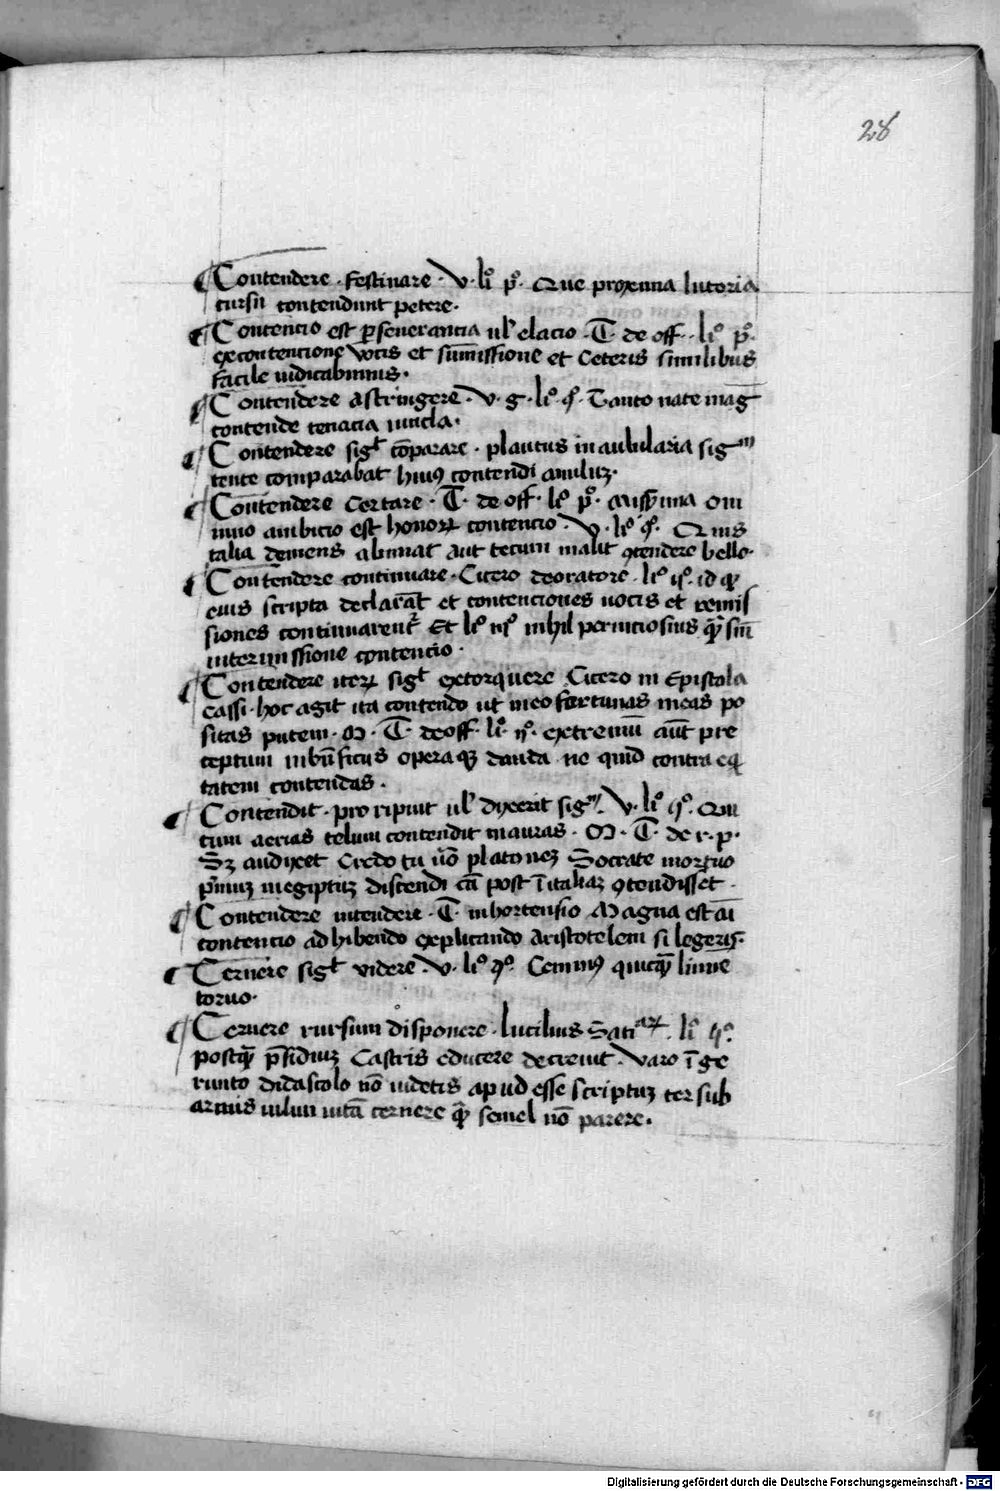 28
Contendere · festinare · V · liº pº · Que proxima litoria
cursu contendunt petere ·
Contencio est ꝑseuerancia ul elacio · T · de off · liº pº ·
ex contencione vocis et sūmissione et Ceteris similibus
facile iudicabimus ·
Contendere astringere · v · g · liº qº · Tanto nate mag̅
contende tenacia uincla ·
Contendere sigͭ cōparare · plautus in aulularia sig
tente comparabat huiꝰ contendi anuluꝫ ·
Contendere Certare · T · de off · liº pº · Misерrima om
nino ambicio est honorꝝ contencio · V · liº qº · Quis
talia demens abnuat aut tecum malit ꝯtendere bello ·
Contendere continuare · Cicero de oratore · liº pº · id ꝙ
eius scripta declarāt et contenciones uocis et remis
siones continuarent Et liº iiiº nihil perniciosius ꝙ̄ sin̄
intermissione contencio ·
Contendere iterꝝ sigͭ extorquere Cicero in Epistola
Cassi · hoc agit ita contendo ut in eo fortunas meas po
sitas putem · M · T · de off · liº iiº · extremū aūt pre
ceptum in bn̄ficijs opera qꝫ danda ne quid contra eq
tatem contendas ·
Contendit · proripiut ul dixerit sig · V · liº qº · Qui
tum aerias telum contendit in auras · M · T · de r · p ·
Sꝫ audixet Credo tu n̄o platoneꝫ Socrate mortuo
pͥmuꝫ in egiptuꝫ discendi cā post ī italiaꝫ ꝯtendisset ·
Contendere intendere · T · in hortensio Magna est aī
contencio adhibendo explicando Aristotelem si legeris ·
Cernere sigͭ videre · v · liº qº · Cernimꝰ quicq̄ʒ lumīe
toruo ·
Cernere rursum disponere · lucilius Satiarꝝ · liº qº ·
postq̄ꝫ p̄sidiuꝫ Castris educere decreuit · Varo ī ge
runto didascolo nō uidetis apud esse scriptuꝫ ter sub
armis uilim uitā cernere ꝙ̄ semel nō parere ·
Digitalisierung gefördert durch die Deutsche Forschungsgemeinschaft · DFG